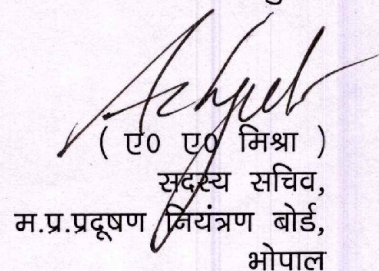 ( ए0 ए0 मिश्रा )
सदस्य सचिव,
म.प्र.प्रदूषण नियंत्रण बोर्ड,
भोपाल